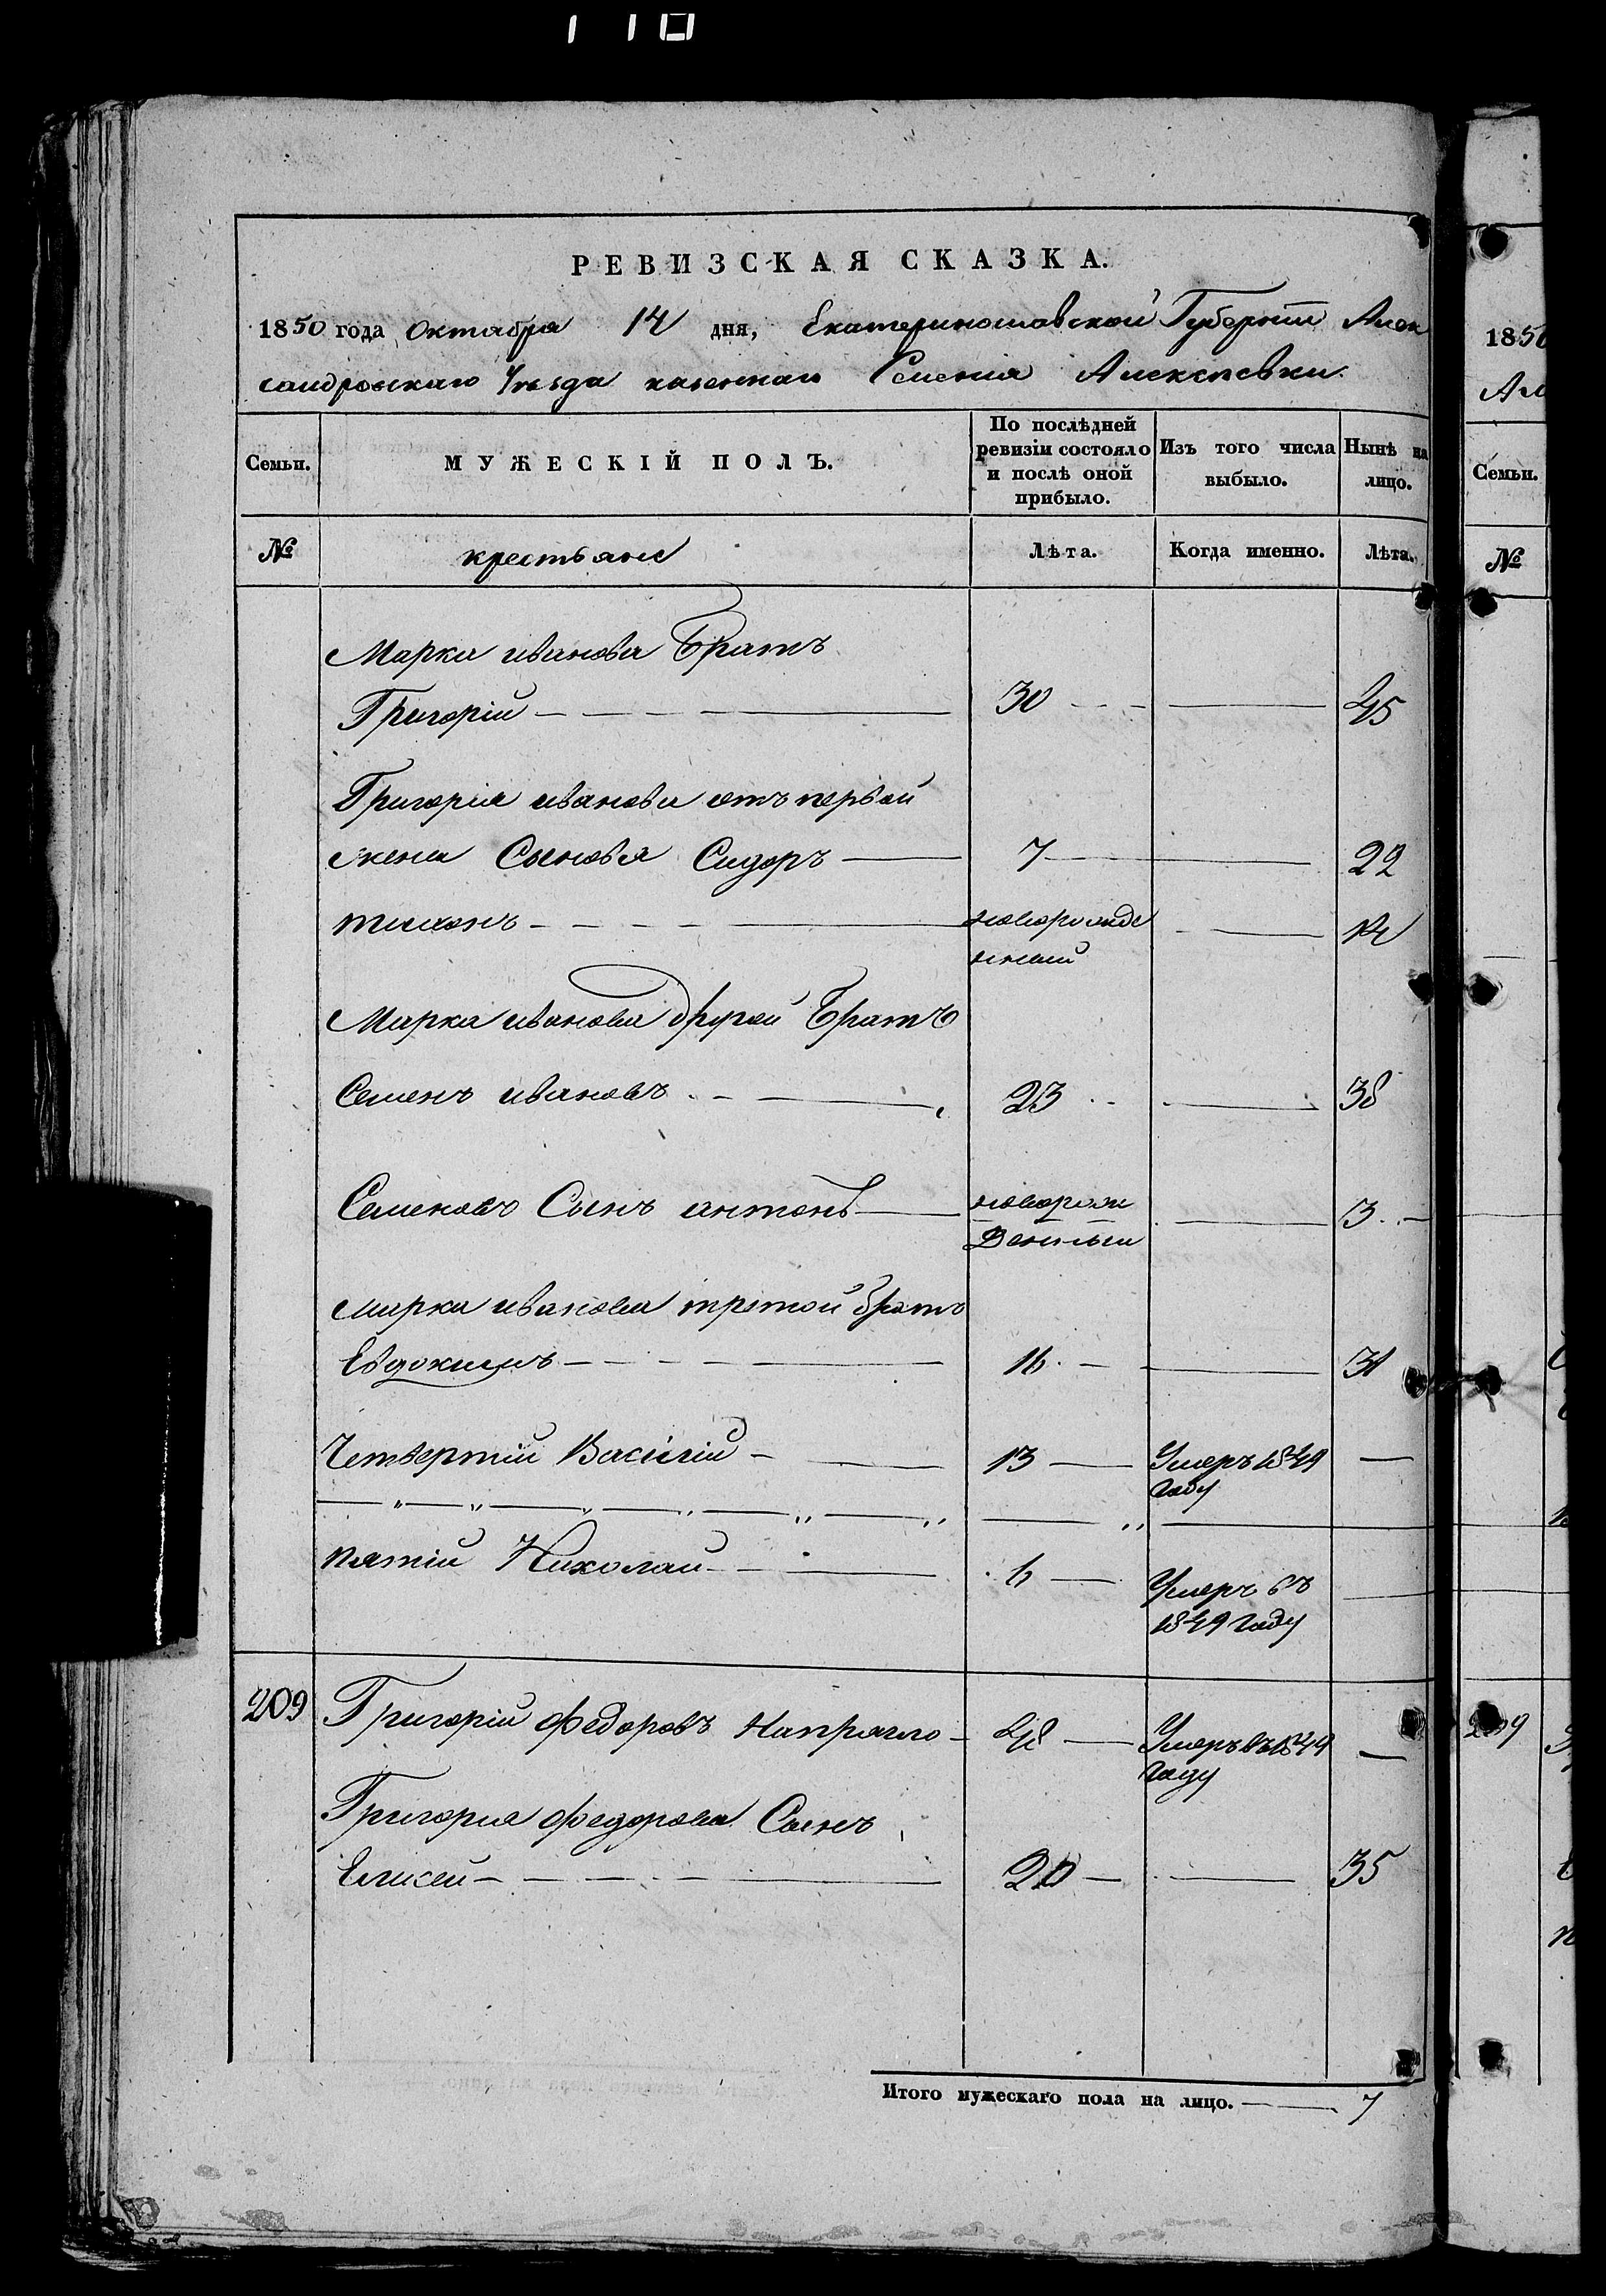 110
РЕВИЗСКАЯ СКАЗКА.
1850 года Октября 14 дня, Екатеринославской Губерніи Алек
сандровскаго Уѣзда казеннаго Селенія Алексѣевки.
Семьи. МУЖЕСКІЙ ПОЛЪ. По послѣдней ревизіи состояло и послѣ оной прибыло. Изъ того числа выбыло. Нынѣ на лицо.
№ крестьяне Лѣта. Когда именно. Лѣта.
Марка иванова Братъ
Григорій 30 45
Григорія иванова отъ первой
жены Сыновья Сидоръ 7 22
новорожде
нный
Марка иванова другой Братъ
Семенъ ивановъ 23 38
Семеновъ Сынъ антонъ новорож 3
Денныи
марка иванова третой братъ
Евдокимъ 16 31
Четвертій Василій 13 Умеръ 1849
Году
пятій Николай 6 Умеръ въ
1849 Году
209 Григорій Федоровъ Напрягло 48 Умеръ въ 1844
Году
Григорія Федорова Сынъ
Елисей 20 35
Итого мужескаго пола на лицо. 7
1850
Ал
Семьи.
№
209